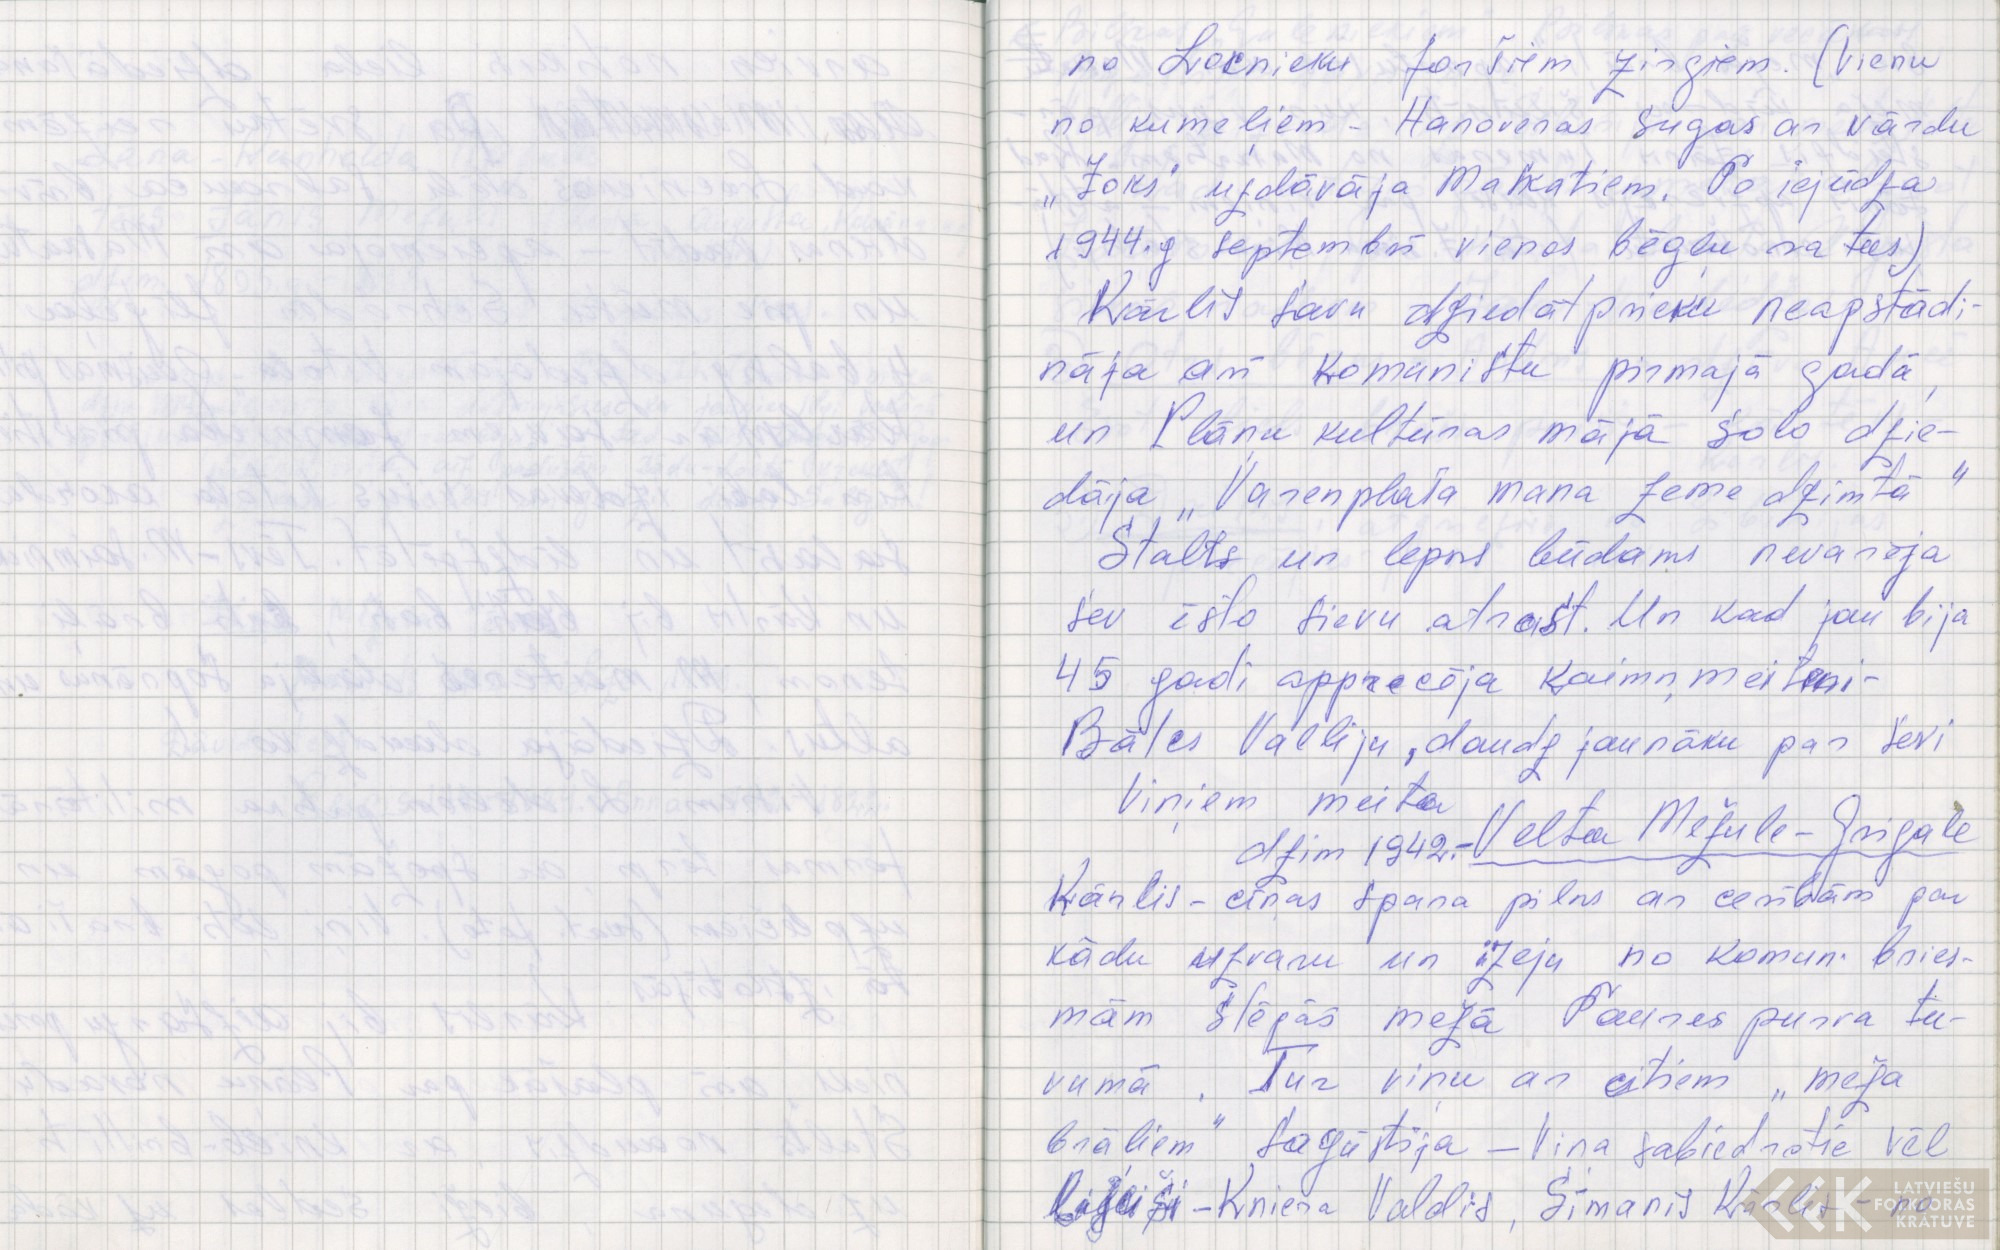 no Locnieku foršiem zirgiem. (Vienu
no kumeļiem - Hanoveras sugas ar vārdu
„Žoks" uzdāvāja Matkatiem. To iejūdza
1944.g septembrī vienos bēgļu ratus)
Kārlis savu dziedātprieku neapstādi-
nāja arī komunistu pirmajā gadā,
un Plāņu kultūras mājā solo dzie-
dāja „Varenplaša mana zeme dzimtā"
Stalts un lepns būdams nevarēja
sev īsto sievu atrast. Un kad jau bija
45 gadi apprecēja kaimiņmeiteni-
Bātes Valliju, daudz jaunāku par sevi
Viņiem meita
dzim 1942.- Velta Mežule-Grigale
Kārlis - cīņas spara pilns ar cerībām par
kādu uzvaru un izeju no komun. bries-
mām slēpās mežā Taures purva tu-
vumā. Tur viņu ar citiem „meža
brāļiem" sagūstīja - Viņa sabiedrotie vēl
- Kniera Valdis, Sīmanis Kārlis - no
LATVIEŠU
FOLKLORAS
KRĀTUVE